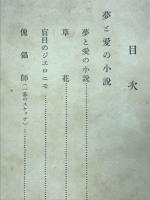 目次
夢と愛の小説
夢と愛の小説
草花
盲目のジエロニモ
傀儡師(一幕のスケッチ)